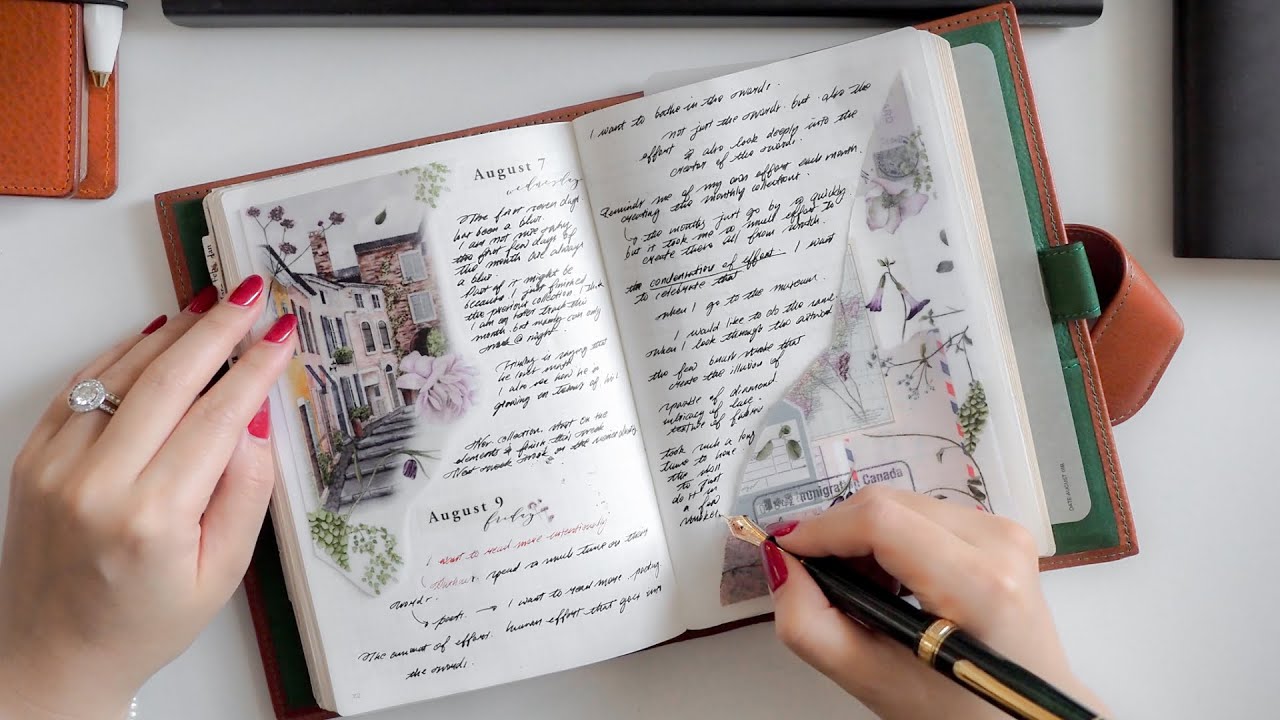 August 7
wednesday
The first seven days
has been a blur.
I am not sure why
the first few days of
the month are always
a blur.
Part of it might be
because I just finished
the previous collection. I think
I am on track this
month. but many can only
week @ night.
is saying that
he
I also see how he is
growing in terms of his
New collection. Most of the
elements & finish this week
New week on the
August 9
friday
I want to read more intentionally
spend so much time on their
words.
poets. → I want to read more poetry
The amount of effort. human effort that goes into
the words.
72
I want to bathe in the words.
not just the words. but also the
effort
& also look deeply into the
creator of the words.
Reminds me of my own effort each month.
creating the monthly collections.
the months just go by so quickly
but it took me so much effort to
create these all from scratch.
the condensation of effort. I want
to celebrate that
when I go to the museum.
I would like to do the same
when I look through the artwork
the few brush strokes that
create the illusion of
sparkle of diamond
intricacy of lace
texture of fabric
took such a long
time to hone
the skill
to just
do it in
a few
strokes.
Immigration Canada
DATE AUGUST